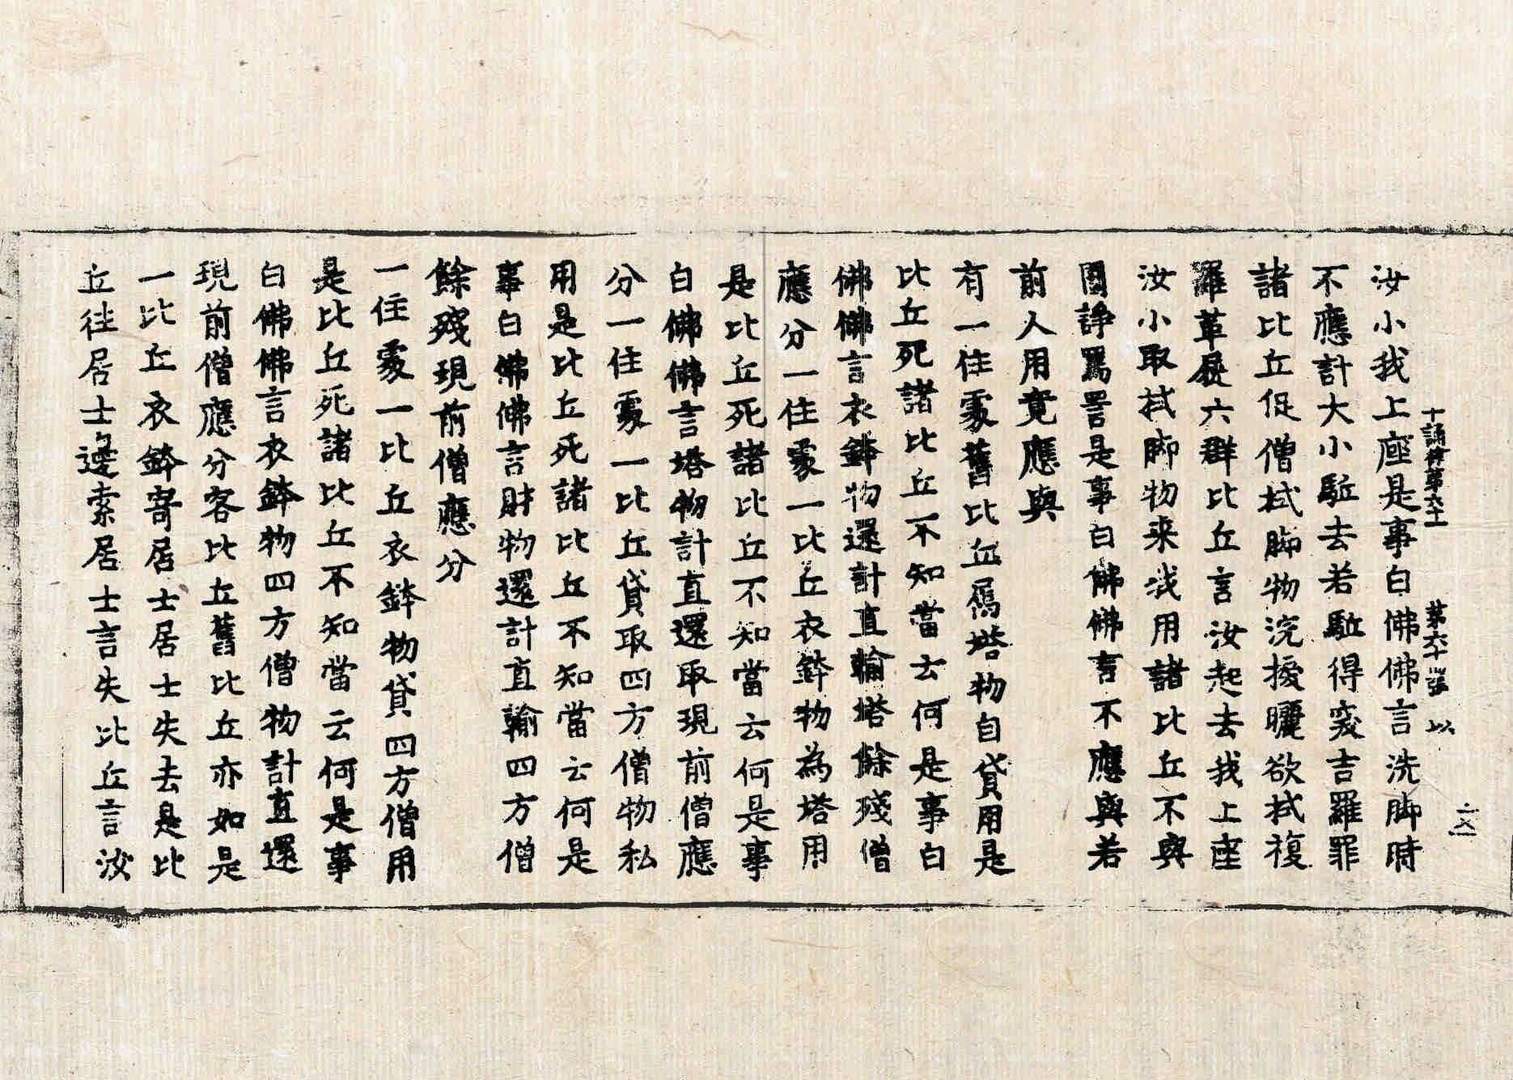 十誦律第六十一 第六十張 以
汝小我上座是事白佛佛言洗脚時
不應計大小駈去若駈得突吉羅罪
諸比丘促僧拭脚物浣擾曬欲拭複
羅革屣六群比丘言汝起去我上座
汝小取拭脚物来我用諸比丘不與
因諍罵詈是事白佛佛言不應與若
前人用竟應與
有一住處舊比丘爲塔物自貸用是
比丘死諸比丘不知當云何是事白
佛佛言衣鉢物還計直輸塔餘殘僧
應分一住處一比丘衣鉢物為塔用
是比丘死諸比丘不知當云何是事
白佛佛言塔物計直還取現前僧應
分一住處一比丘貸取四方僧物私
用是比丘死諸比丘不知當云何是
事白佛佛言財物還計直輸四方僧
餘殘現前僧應分
一住處一比丘衣鉢物貸四方僧用
是比丘死諸比丘不知當云何是事
白佛佛言衣鉢物四方僧物計直還
現前僧應分客比丘舊比丘亦如是
一比丘衣鉢寄居士居士失去是比
丘往居士邊索居士言失比丘言汝